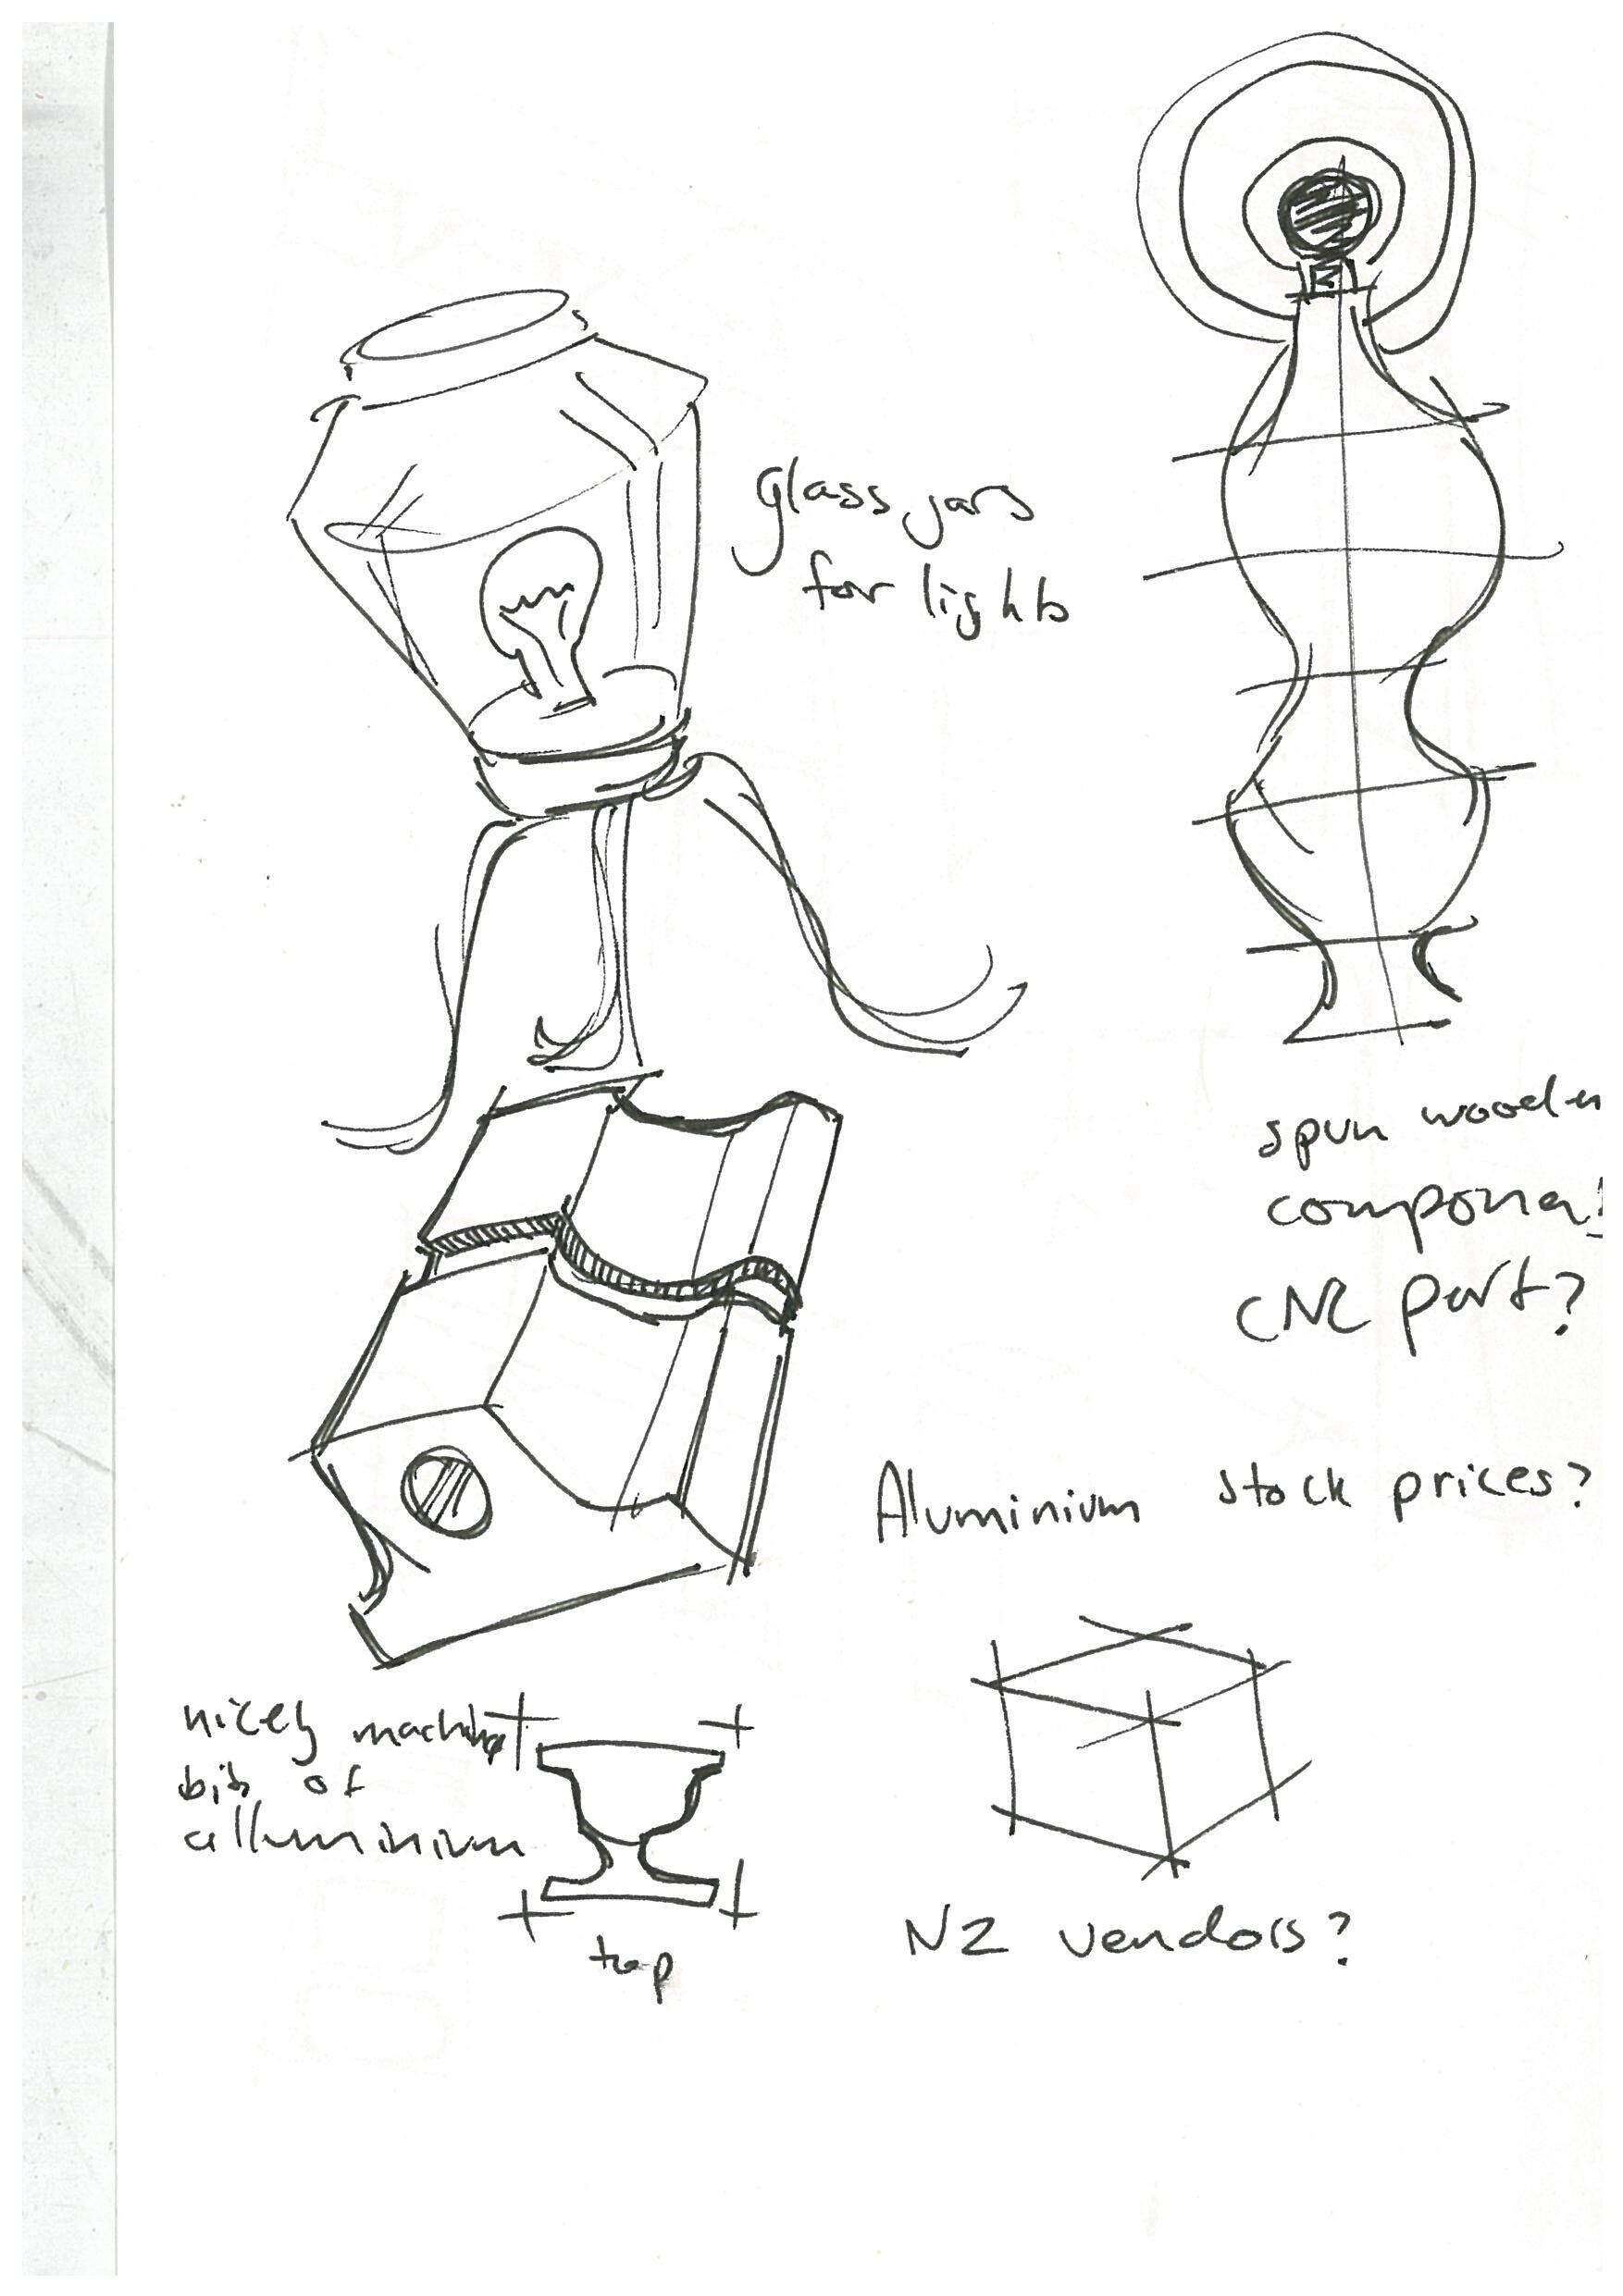 glass jars
for lights
spun wooden
componen
CNC part?
Aluminium stock prices?
nicely machined
bits of
alluminium
NZ vendors?